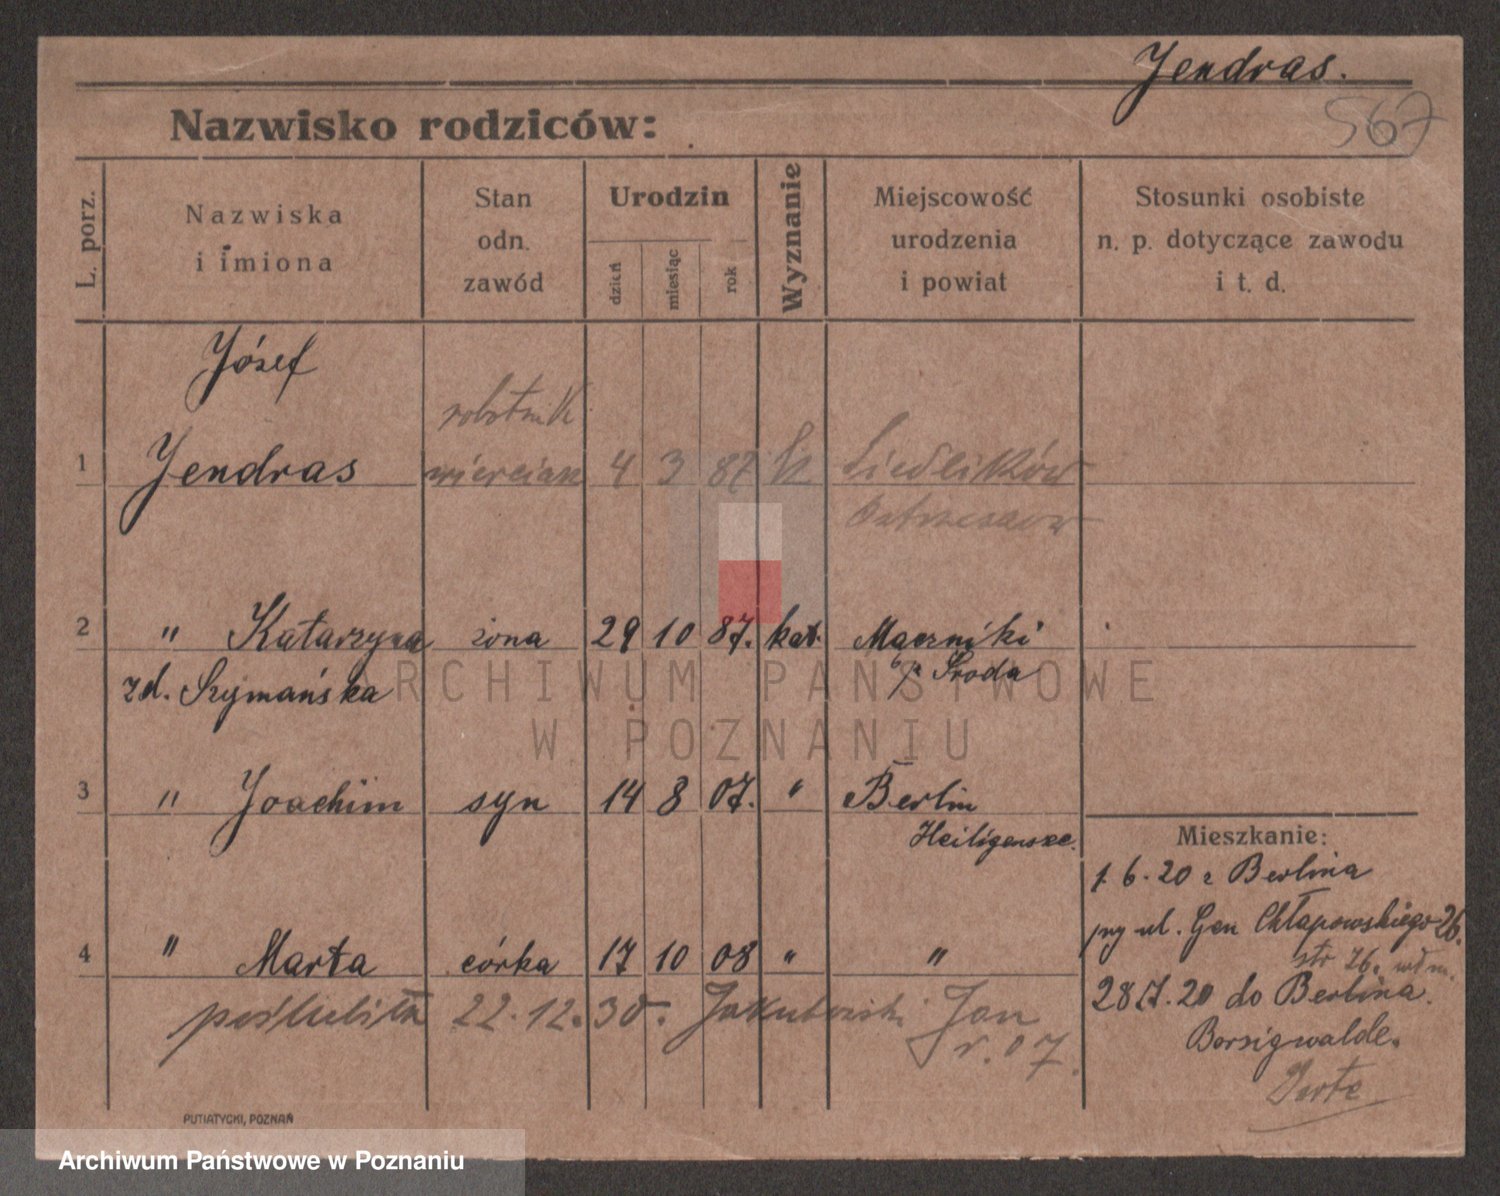 Jendras.
567
Nazwisko rodziców:
L. porz.
Nazwiska
i imiona
Stan
odn.
zawód
Urodzin
dzień
miesiąc
rok
Wyznanie
Miejscowość
urodzenia
i powiat
Stosunki osobiste
n. p. dotyczące zawodu
i t. d.
Józef
robotnik
1 Jendras wierciak 4 3 87 k Siedlików
Ostrzeszów
2 " Katarzyna żona 29 10 87. kat. Mączniki
zd. Szymańska p/ Środa
ARCHIWUM PAŃSTWOWE
W POZNANIU
3 " Joachim syn 14 8 07. " Berlin
Heiligensee.
Mieszkanie:
1. 6. 20 z Berlina
4 " Marta córka 17 10 08 " "
przy ul. Gen Chłapowskiego 26.
str 26.
28.7.20 do Berlina.
Borsigwalde.
poślubiła 22.12.30. Jakubowski Jan
r. 07.
PUTIATYCKI, POZNAŃ
Archiwum Państwowe w Poznaniu